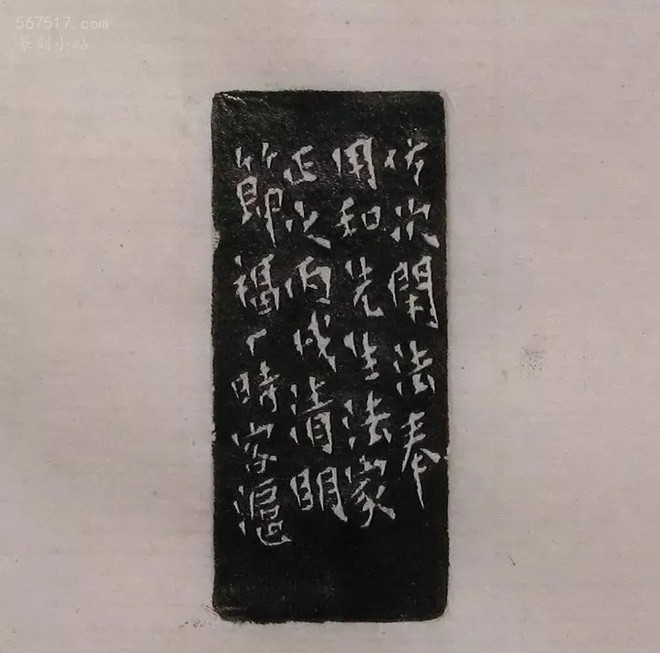 567517.com
篆刻小站
仿次閑法奉
用和先生法家
正之丙戌清明
節福厂時客滬